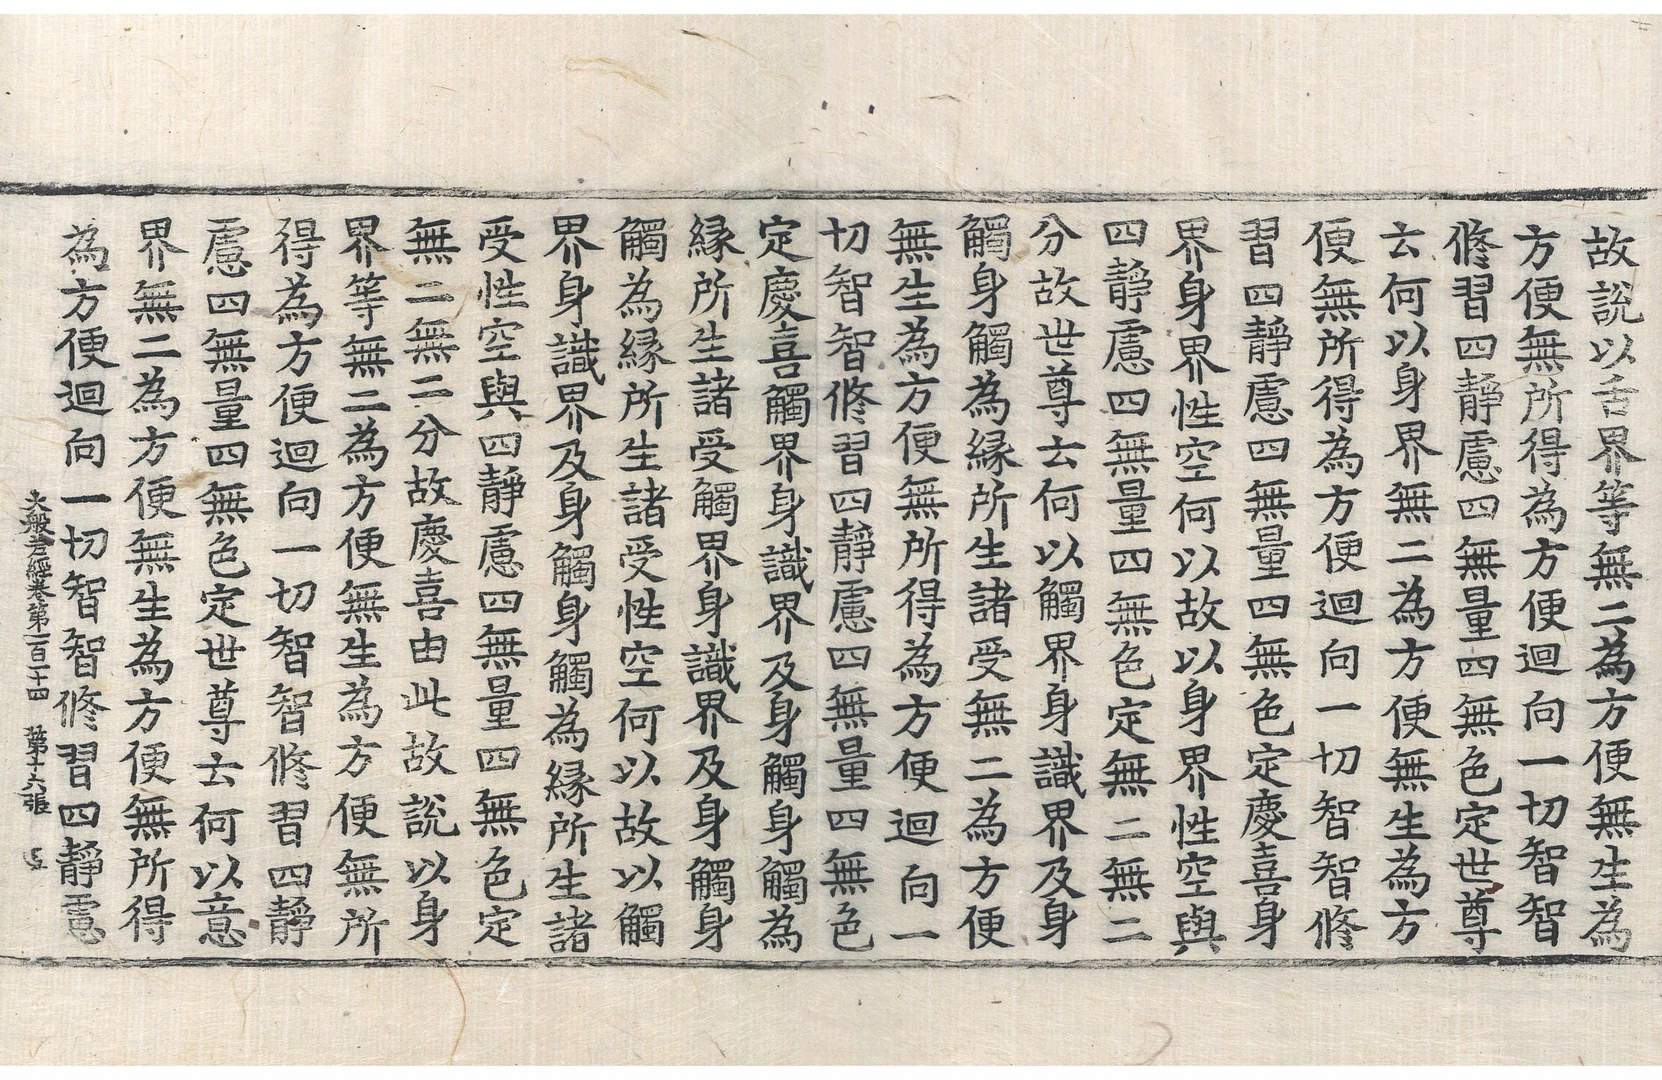 故說以舌界等無二為方便無生為
方便無所得為方便迴向一切智智
修習四靜慮四無量四無色定世尊
云何以身界無二為方便無生為方
便無所得為方便迴向一切智智修
習四靜慮四無量四無色定慶喜身
界身界性空何以故以身界性空與
四靜慮四無量四無色定無二無二
分故世尊云何以觸界身識界及身
觸身觸為緣所生諸受無二為方便
無生為方便無所得為方便迴向一
切智智修習四靜慮四無量四無色
定慶喜觸界身識界及身觸身觸為
緣所生諸受觸界身識界及身觸身
觸為緣所生諸受性空何以故以觸
界身識界及身觸身觸為緣所生諸
受性空與四靜慮四無量四無色定
無二無二分故慶喜由此故說以身
界等無二為方便無生為方便無所
得為方便迴向一切智智修習四靜
慮四無量四無色定世尊云何以意
界無二為方便無生為方便無所得
為方便迴向一切智智修習四靜慮
大般若經卷第一百二十四 第十六張